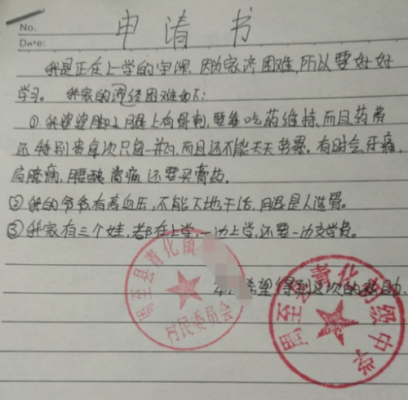 No.
Date:
申请书
我是正在上学的 因为家济困难,所以要好好
学习。 我家的 经困难如下:
① 我婆婆脚上腿上有骨刺,要每 吃药维持,而且药费
还特别贵每次只 一 ,而且还不能天天 。有时会牙痛,
肩膀痛,腰酸 背痛,还要买膏药。
② 我的爷爷有高血压,不能下地干活,
③ 我家有三个娃,都在上学,一边上学,还要一边
希望得到这次的 助
周至县青化镇
村民委员会
周至县青化初级中学